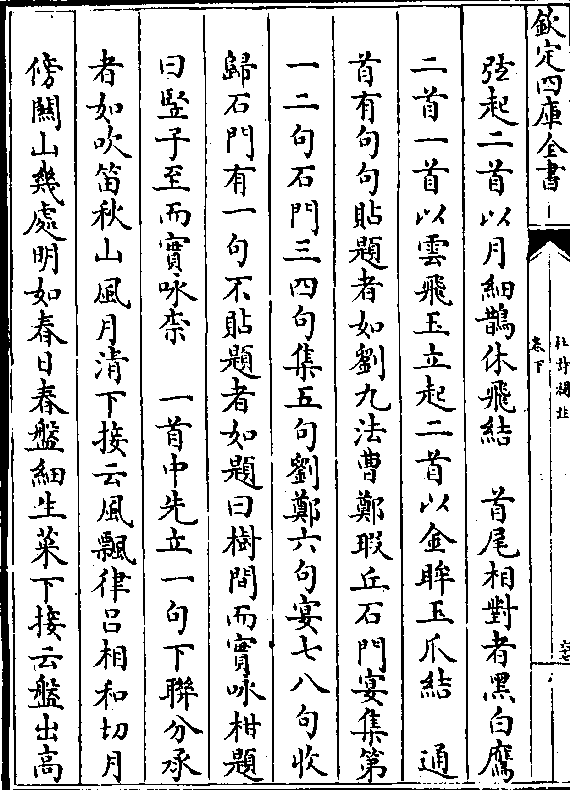 欽定四庫全書
杜詩攟
卷下
弦起二首以月細鵲休飛結　首尾相對者黑白鷹
二首一首以雲飛玉立起二首以金眸玉爪結　通
首有句句貼題者如劉九法曹鄭瑕丘石門宴集第
一二句石門三四句集五句劉鄭六句宴七八句收
歸石門有一句不貼題者如題曰樹間而實咏柑題
曰豎子至而實咏柰　一首中先立一句下聯分承
者如吹笛秋山風月清下接云風飄律呂相和切月
傍關山幾處明如春日春盤細生菜下接云盤出高